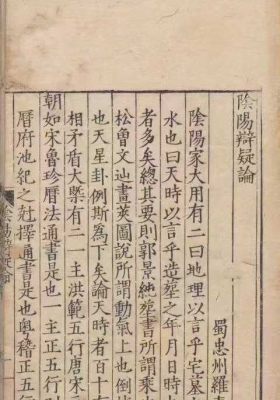 陰陽辯疑論
蜀忠州羅青
陰陽家大用有二曰地理以言乎宅墓
水也曰天時以言乎造塟之年月日時
者多矣總其要則郭景純塟書所謂乘
松魯文辿畫莢圖說所謂動氣上也倒地
也天星卦例斯為下矣論天時者百十
相矛盾大槩有二一主洪範五行唐宋元
朝如宋魯珍曆法通書是也一主正五行則
曆府池紀之尅擇通書是也奥稽正五行